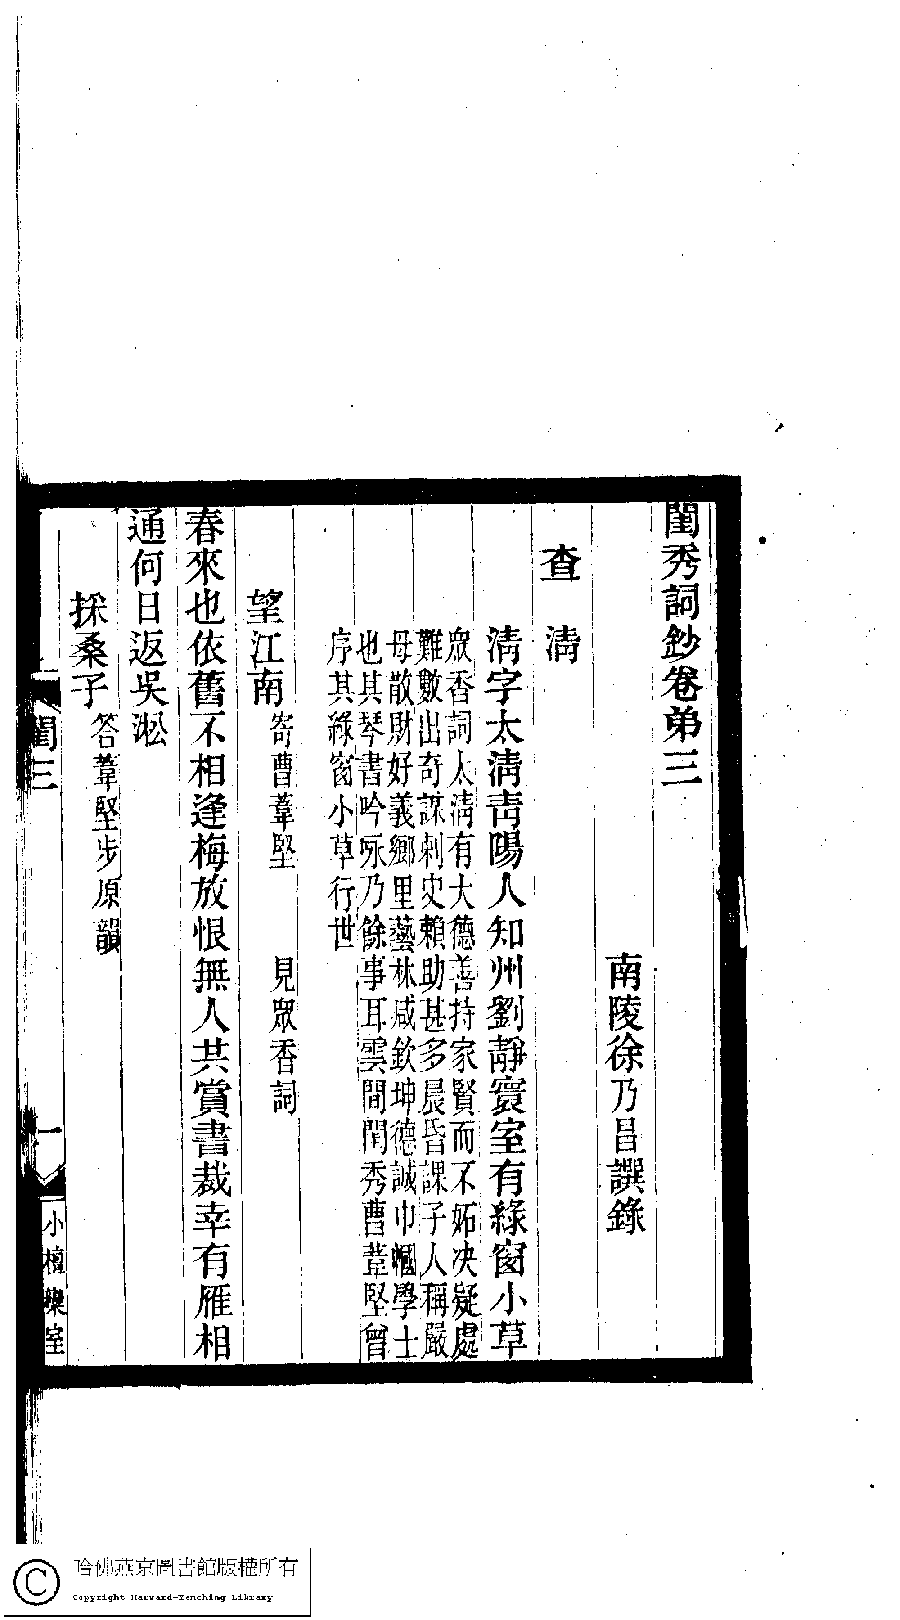 閨秀詞鈔卷弟三
南陵徐乃昌譔錄
查 淸
淸字太淸靑陽人知州劉靜寰室有綠窗小草
眾香詞太淸有大德善持家賢而不妬决疑處
難數出奇謀刺史賴助甚多晨昏課子人稱嚴
母散財好義鄉里藝林咸欽坤德誠巾幗學士
也其琴書吟咏乃餘事耳雲間閨秀曹葦堅曾
序其綠窗小草行世
望江南 寄曹葦堅 見眾香詞
春來也依舊不相逢梅放恨無人共賞書裁幸有雁相
通何日返吳淞
採桑子 答葦堅步原韻
閨三
一
小檀欒室
哈佛燕京圖書館版權所有
Copyright Harvard-Yenching Library